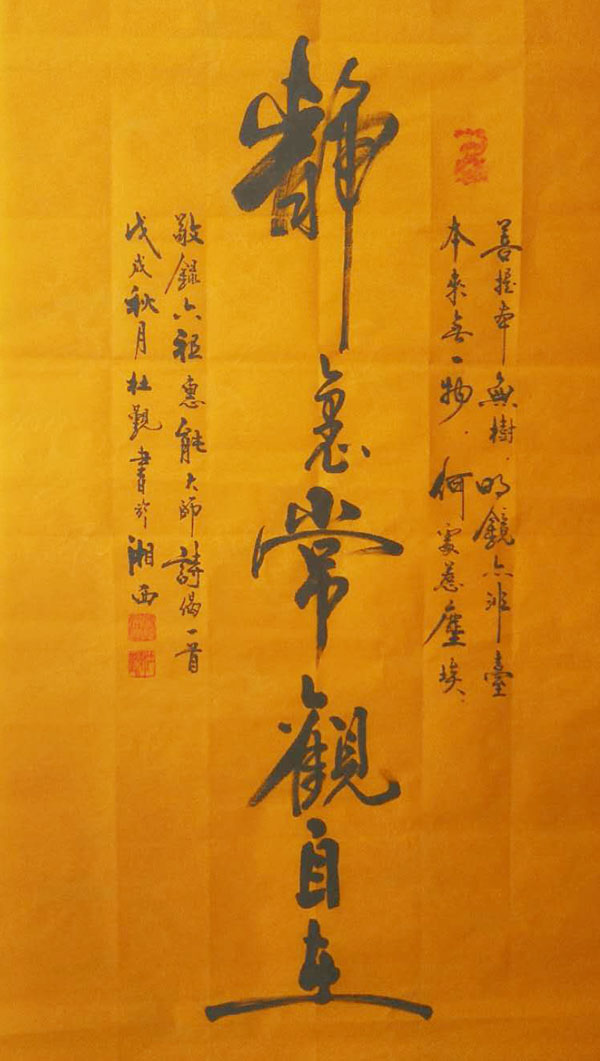 菩提本無樹.明鏡亦非臺
本來無一物.何處惹塵埃.
靜裏常觀自在
敬錄六祖惠能大師詩偈一首
戊戌秋月杜觀書於湘西